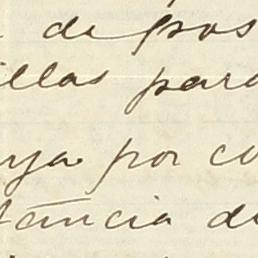 de pos
illas para
ya por co
tancia de